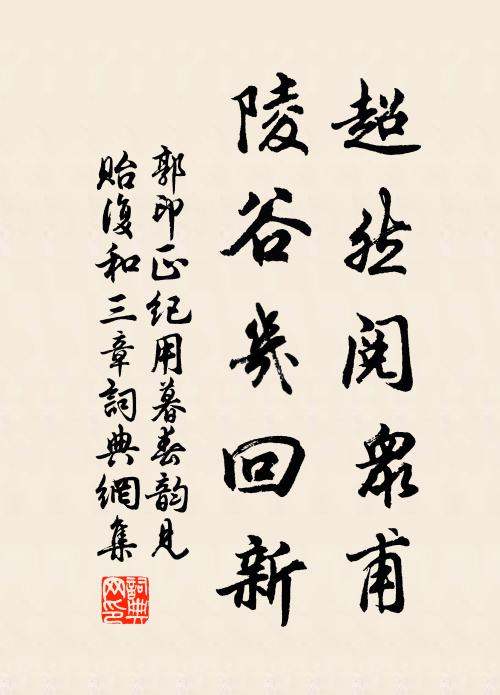 超然閱衆甫
陵谷幾回新
郭印正紀用暮春韵見
貽復和三章詞典網集
詞典
网印